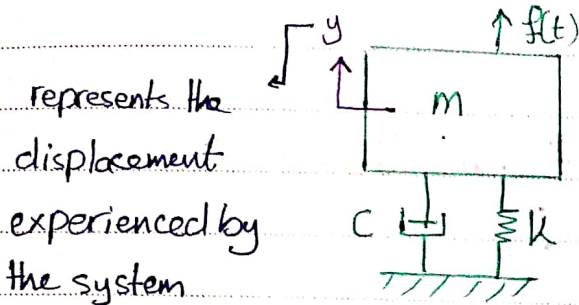 y
f(t)
represents the
m
displacement
experienced by
C
k
the system